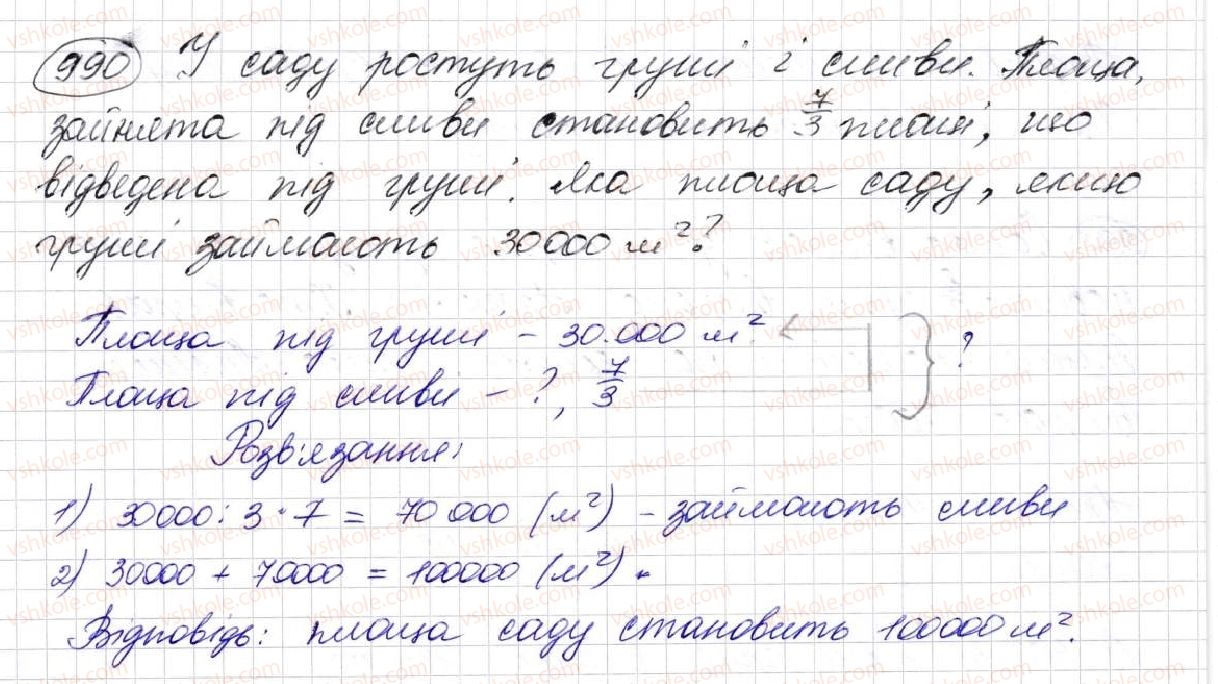 990 У саду ростуть груші і сливи. Площа,
зайнята під сливи становить 7/3 площі, що
відведена під груші. Яка площа саду, якщо
груші займають 30000 м²?
Площа під груші - 30.000 м²
Площа під сливи - ?, 7/3
?
Розв'язання:
1) 30000 : 3 · 7 = 70 000 (м²) - займають сливи
2) 30000 + 70000 = 100000 (м²).
Відповідь: площа саду становить 100000 м².